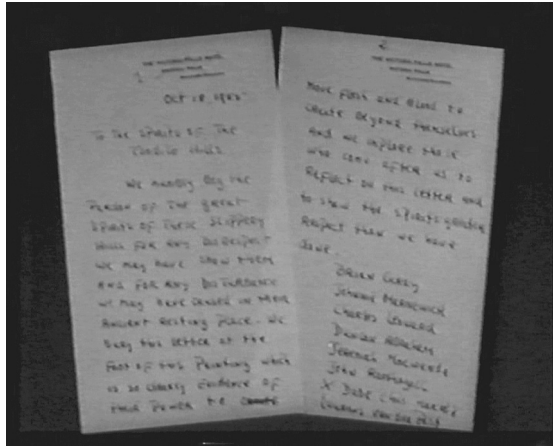 THE VICTORIA FALLS HOTEL
1
Oct 18, 1955
To The Spirits of The
Tsodilo Hills.
We humbly beg the
Pardon of The great
Spirits of These Slippery
Hills for any Disrespect
we may have show Them
and for any Disturbance
we may have caused in Their
Ancient Resting Place. We
Bury this letter at the
Foot of this Painting which
is so clearly evidence of
their Power to
2
THE VICTORIA FALLS HOTEL
move flesh and Blood to
create Beyond Themselves
And we implore those
who come after us to
Reflect on this letter and
to show the Spirits greater
Respect than we have
done.
Charles Leonard
Jeremiah
John
X
Laurens van der Post